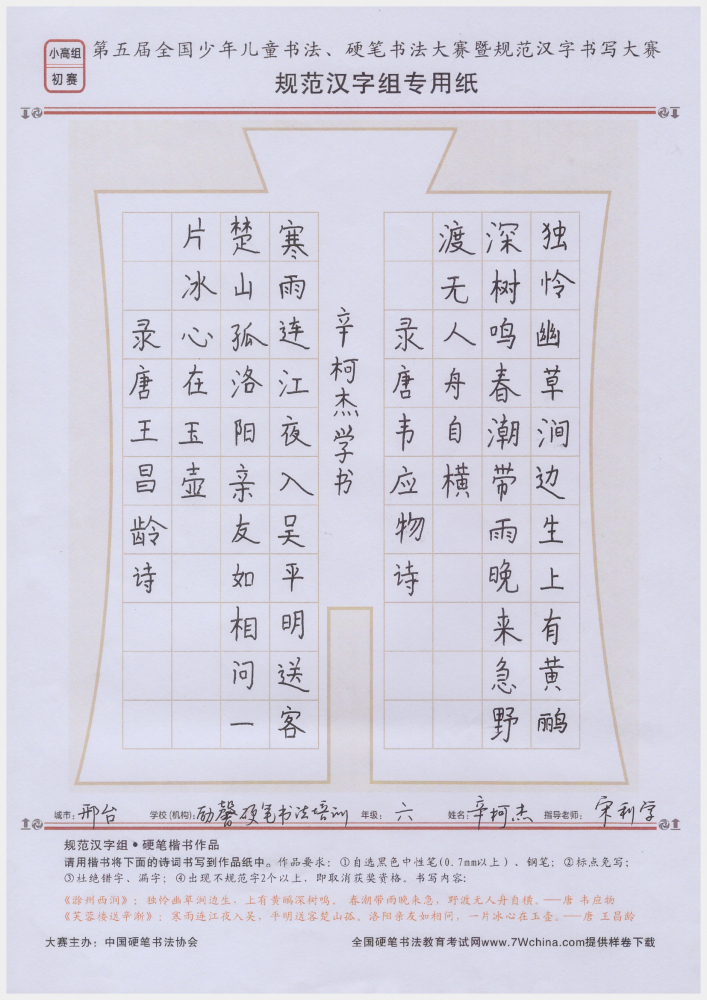 小高组
初赛
第五届全国少年儿童书法、硬笔书法大赛暨规范汉字书写大赛
规范汉字组专用纸
独怜幽草涧边生上有黄鹂
深树鸣春潮带雨晚来急野
渡无人舟自横
录唐韦应物诗
辛柯杰学书
寒雨连江夜入吴平明送客
楚山孤洛阳亲友如相问一
片冰心在玉壶
录唐王昌龄诗
城市：邢台 学校(机构)：励馨硬笔书法培训 年级：六 姓名：辛柯杰 指导老师：宋利学
规范汉字组●硬笔楷书作品
请用楷书将下面的诗词书写到作品纸中。作品要求：①自选黑色中性笔(0.7mm以上)、钢笔；②标点免写；
③杜绝错字、漏字；④出现不规范字2个以上，即取消获奖资格。书写内容：
《滁州西涧》：独怜幽草涧边生，上有黄鹂深树鸣。 春潮带雨晚来急，野渡无人舟自横。——唐 韦应物
《芙蓉楼送辛渐》：寒雨连江夜入吴，平明送客楚山孤。洛阳亲友如相问，一片冰心在玉壶。——唐 王昌龄
大赛主办：中国硬笔书法协会 全国硬笔书法教育考试网www.7Wchina.com提供样卷下载